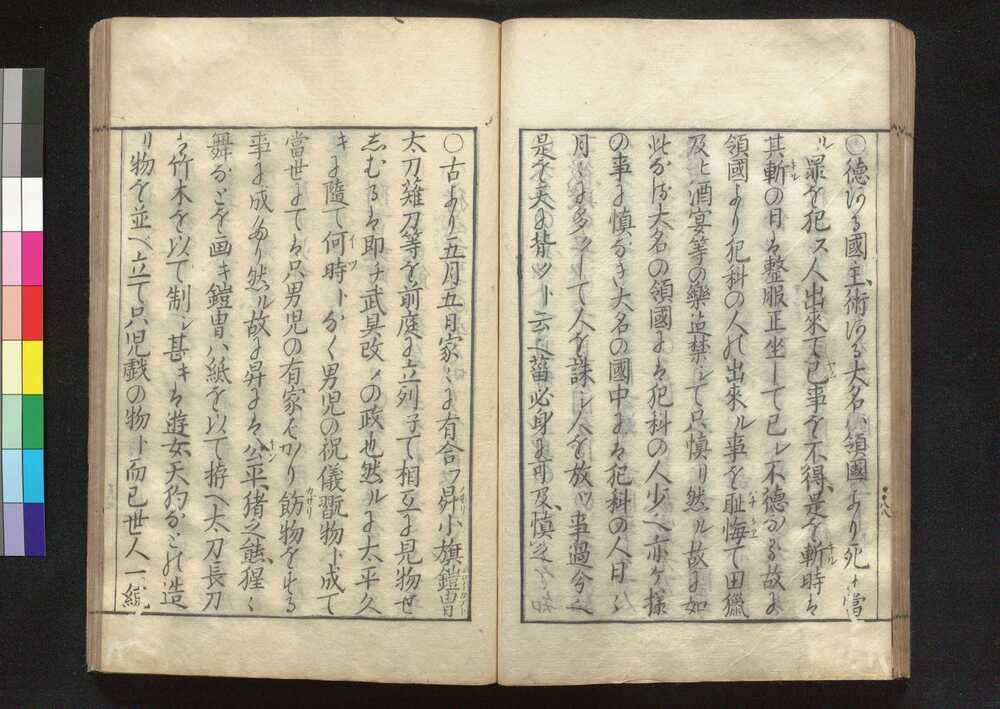 ○徳ある國主術ある大名ハ領國より死ニ當
ル罪を犯ス人出來て已事を不得是を斬時は
其斬の日は整服正坐して已レ不徳なる故に
領國より犯科の人の出來ル事を耻悔て田獵
及ヒ酒宴等の樂ミ禁シて只慎り然ル故に如
此なる大名の領國には犯科の人少ヘ亦ケ様
の事に慎なき大名の國中には犯科の人日ゝ
月ゝに多クして人を誅シ人を放ツ事過今ヘ
是を天に背ツト云ヘ菑必身に可及慎之
○古より五月五日家々に有合フ昇小旗鎧冑
太刀雉刀等を前庭に立列子て相互に見物せ
志むるは即チ武具改メの政也然ルに太平久
キに隨て何時トなく男児の祝儀翫物ト成て
當世にては只男児の有家ばかり餝物をする
事に成たり然ル故に昇には公平猪之熊猩々
舞などを画キ鎧冑ハ紙を以て拵ヘ太刀長刀
は竹木を以て制シ甚キは遊女天狗などの造
リ物を並ヘ立て只児戯の物ト而已世人一統